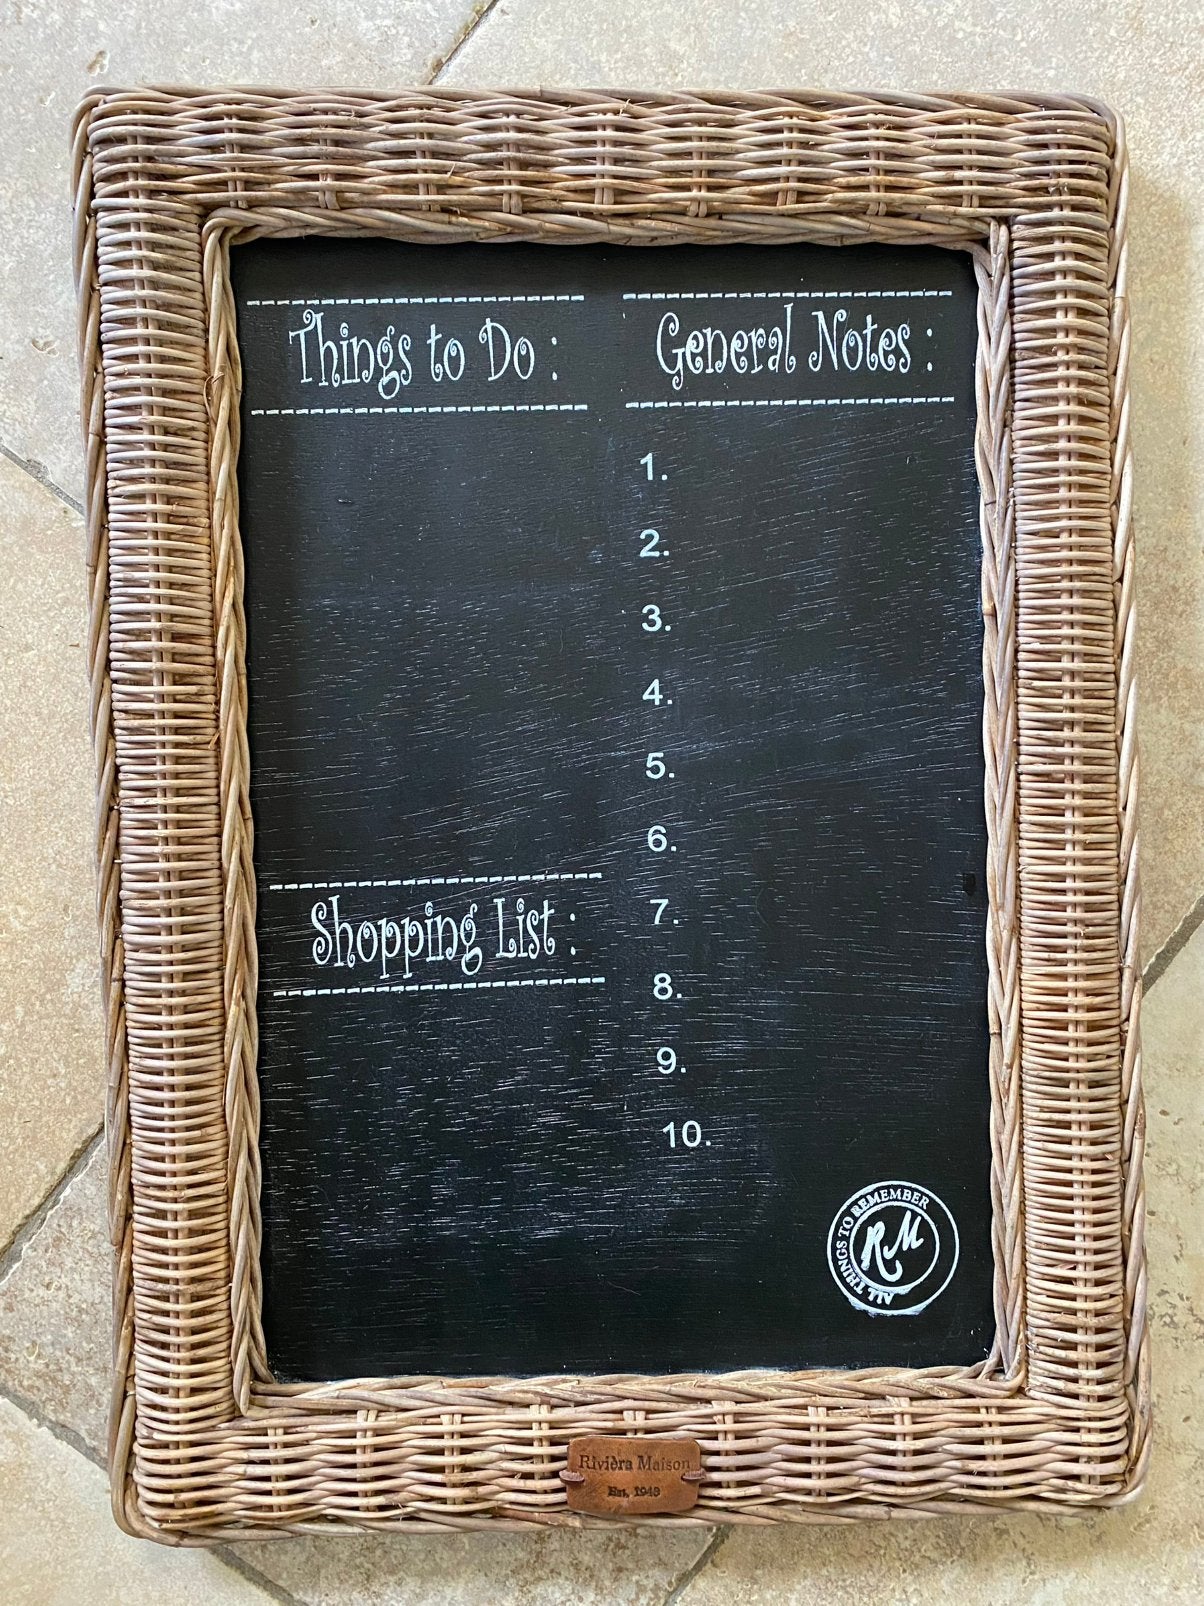 Things to Do :
General Notes :
1.
2.
3.
4.
5.
6.
7.
8.
9.
10.
Shopping List :
ALL THINGS TO REMEMBER
RM
Rivièra Maison
Est. 1948